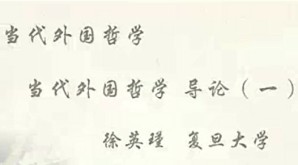 当代外国哲学
当代外国哲学 导论（一）
徐英瑾 复旦大学